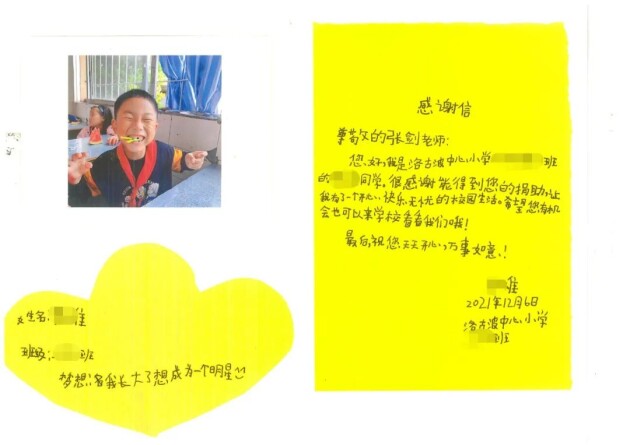 感谢信
尊敬的张剑老师:
您好,我是洛古波中心小学班
的同学。很感谢能得到您的捐助,让
我有了一个开心、快乐无忧的校园生活。希望您有机
会也可以来学校看看我们哦!
最后,祝您天天开心,万事如意!
2021年12月6日
洛古波中心小学
班
生名:
班级:班
梦想:我长大了想成为一个明星